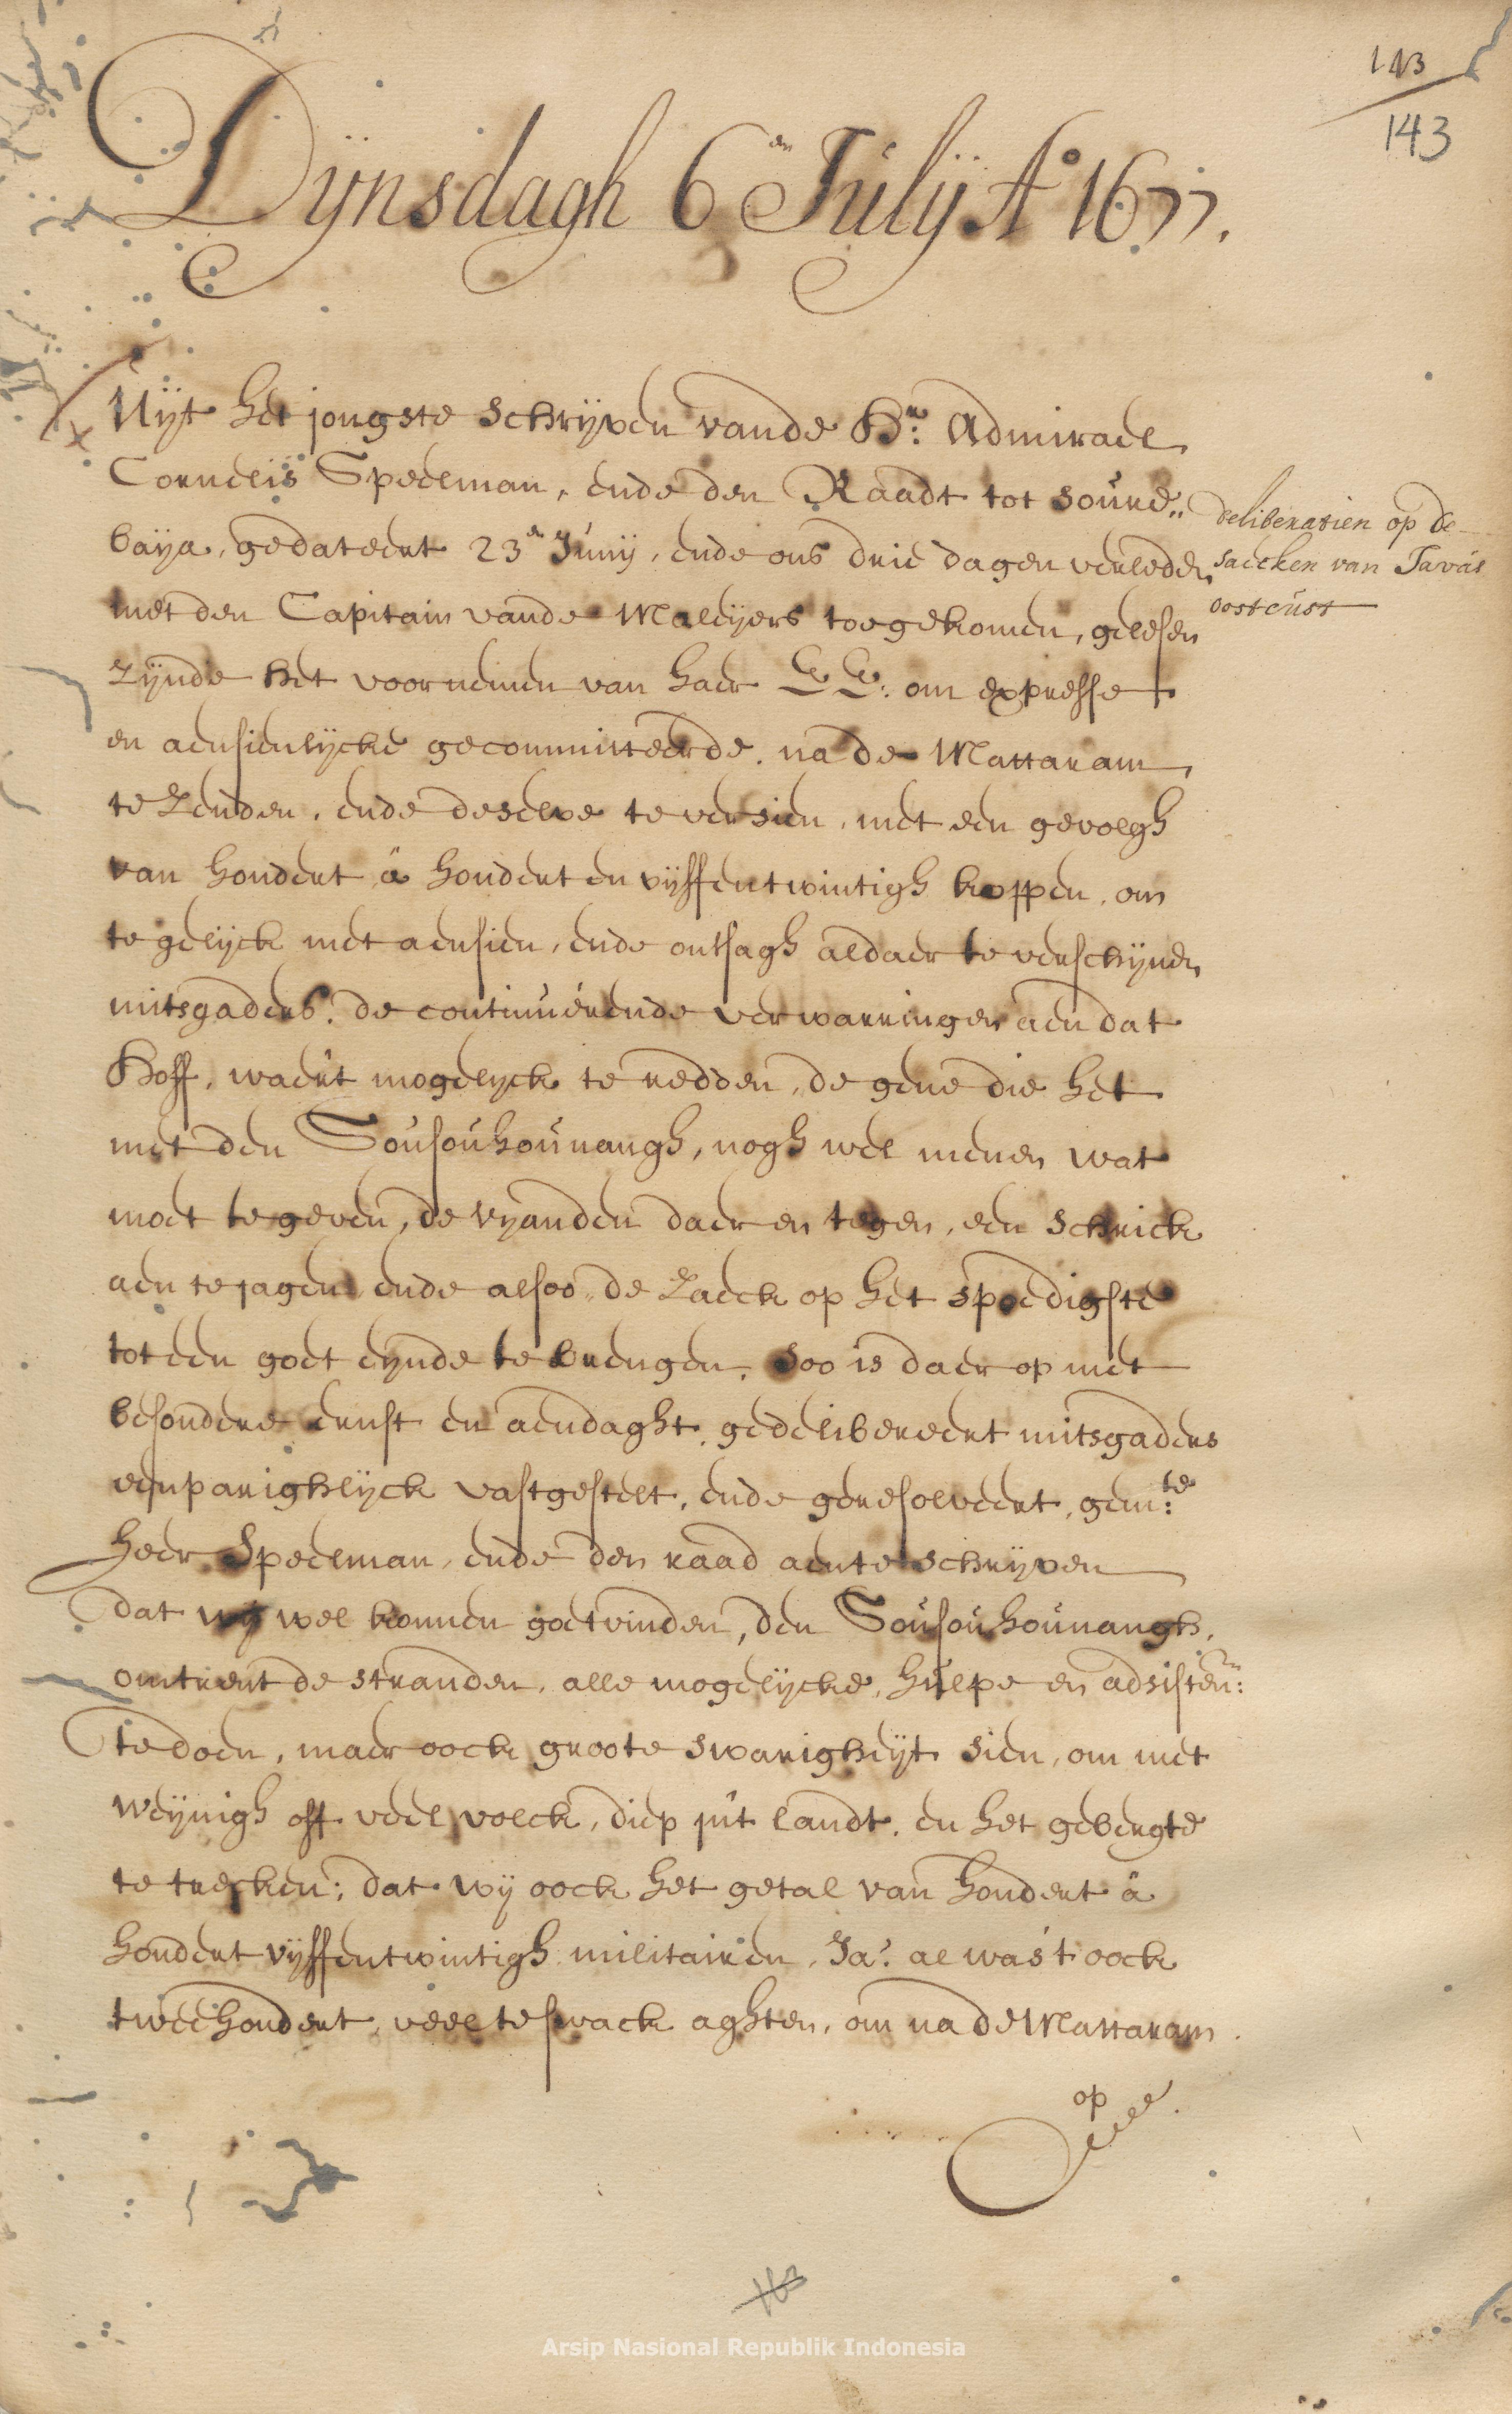 143
143
Dijnsdagh 6en Julij Ao 1677.
Uijt het jongste schrijven vande Hr: Admirael
Cornelis Speelman, ende den Raadt tot soure„
baija, gedateert 23en Junij, ende ons drie dagen verleden
met den Capitain vande Maleijers toegekomen, gelesen
zijnde het voornemen van haer EE: om expresse
en aensienlijcke gecommitteerde. na de Mattaram
te zenden, ende deselve te versien, met een gevolgh
van hondert â hondert en vijffentwintigh koppen, om
te gelijck met aensien, ende ontsagh aldaer te verschijnen
mitsgaders. de continuerende verwarringen aen dat
Hoff, waer't mogelyck te redden, de gene die het
met den Sousouhounangh, nogh wel menen wat
moet te geven, de vyanden daer en tegen, een schrick
aen te jagen ende alsoo de zaeck op het spoedighste
tot een goet eynde te brengen, soo is daer op met
besondere ernst en aendaght, gedelibereert mitsgaders
eenparighlijck vastgestelt, ende geresolveert, gem:te
heer Speelman, ende den raad aen te schrijven
dat wij wel konnen goetvinden, den Sousouhounangh,
omtrent de stranden, alle mogelijcke, hulpe en adsisten:
te doen, maer oock groote swarigheijt sien, om met
weijnigh off veel volck, diep in't landt, en het gebergte
te trecken; dat wij oock het getal van hondert â
hondert vijffentwintigh militairen, Ja. al was't oock
tweehondert, veel te swack aghten, om na de Mattaram
op
deliberatien op de
saecken van Javas
oostcust
Arsip Nasional Republik Indonesia